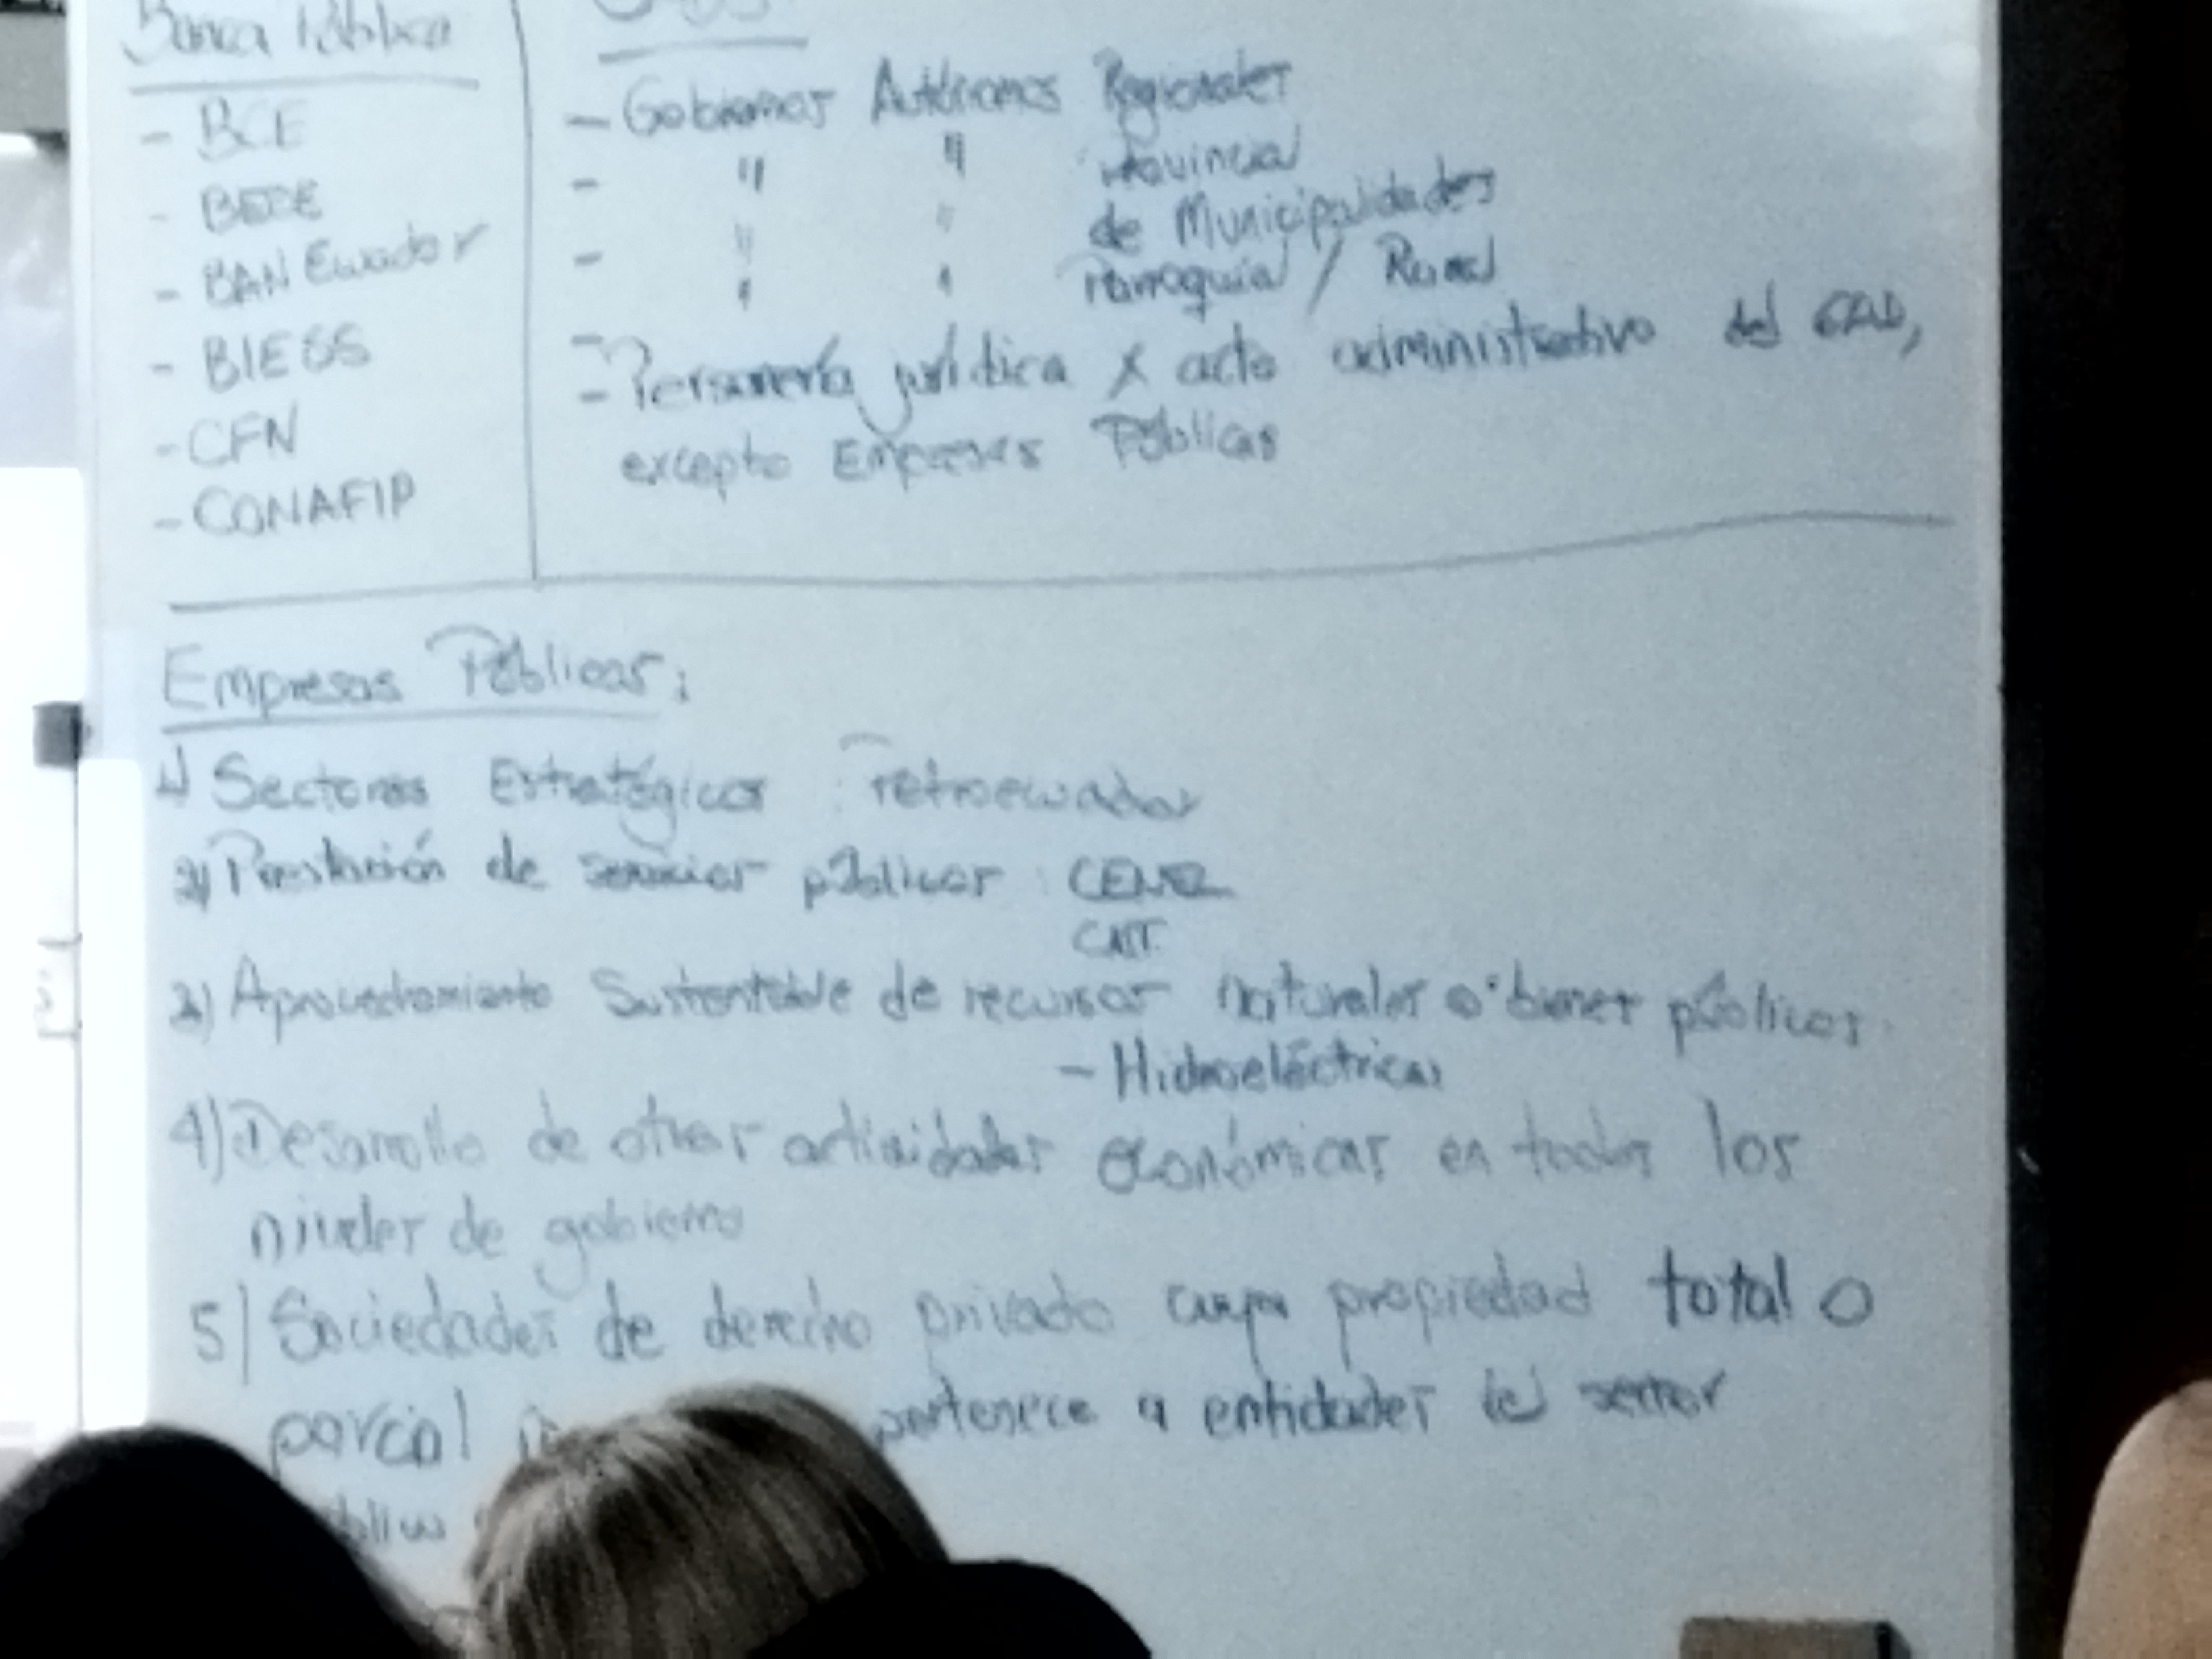 Banca Pública
- BCE
- BEDE
- BAN Ecuador
- BIESS
- CFN
- CONAFIP
- Gobiernos Autónomos Regionales
- " " Provincial
- " " de Municipalidades
- " " Parroquial / Rural
- Personería jurídica x acto administrativo del GAD,
excepto Empresas Públicas
Empresas Públicas:
1) Sectores Estratégicos : Petroecuador
2) Prestación de servicios públicos :
3) Aprovechamiento Sustentable de recursos naturales o bienes públicos.
- Hidroeléctricas
4) Desarrollo de otras actividades económicas en todos los
niveles de gobierno
5) Sociedades de derecho privado cuya propiedad total o
parcial pertenece a entidades del sector